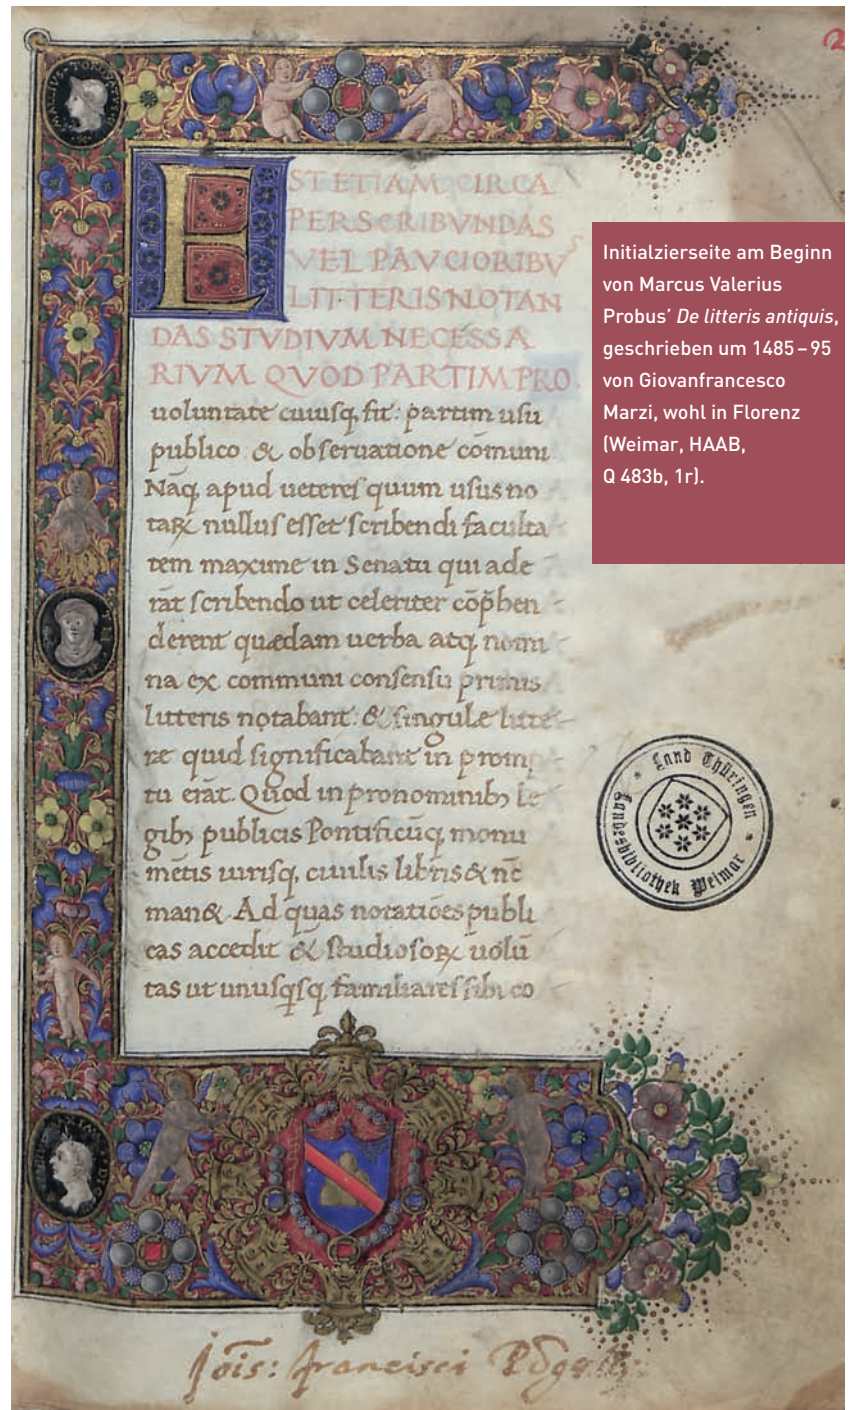 ST ETIAM CIRCA
PERSCRIBVNDAS
VEL PAVCIORIBV
S
LITTERIS NOTAN
DAS STVDIVM NECESSA
RIVM QVOD PARTIM PRO
uoluntate cuiusq, fit: partim usu
publico & obseruatione comuni
Nãq, apud ueteres quum usus no
taꝝ nullus esset scribendi faculta
tem maxime in Senatu qui ade
rãt scribendo ut celeriter cõp̃hen
derent quædam uerba atq, nomi
na ex communi consensu primis
litteris notabant: & singulæ litte
ræ quid significabant in promp
tu erãt. Quod in pronominibꝫ le
gibꝫ publicis Pontificũq, monu
mẽtis iurisq, ciuilis libris & nc̄
man& Ad quas notatiões publi
cas accedit & studiosoꝝ uolũ
tas ut unusqsq, familiares sibi co
Initialzierseite am Beginn
von Marcus Valerius
Probus’ De litteris antiquis,
geschrieben um 1485–95
von Giovanfrancesco
Marzi, wohl in Florenz
(Weimar, HAAB,
Q 483b, 1r).
Land Thüringen
Landesbibliothek Weimar
Jõis: francisci